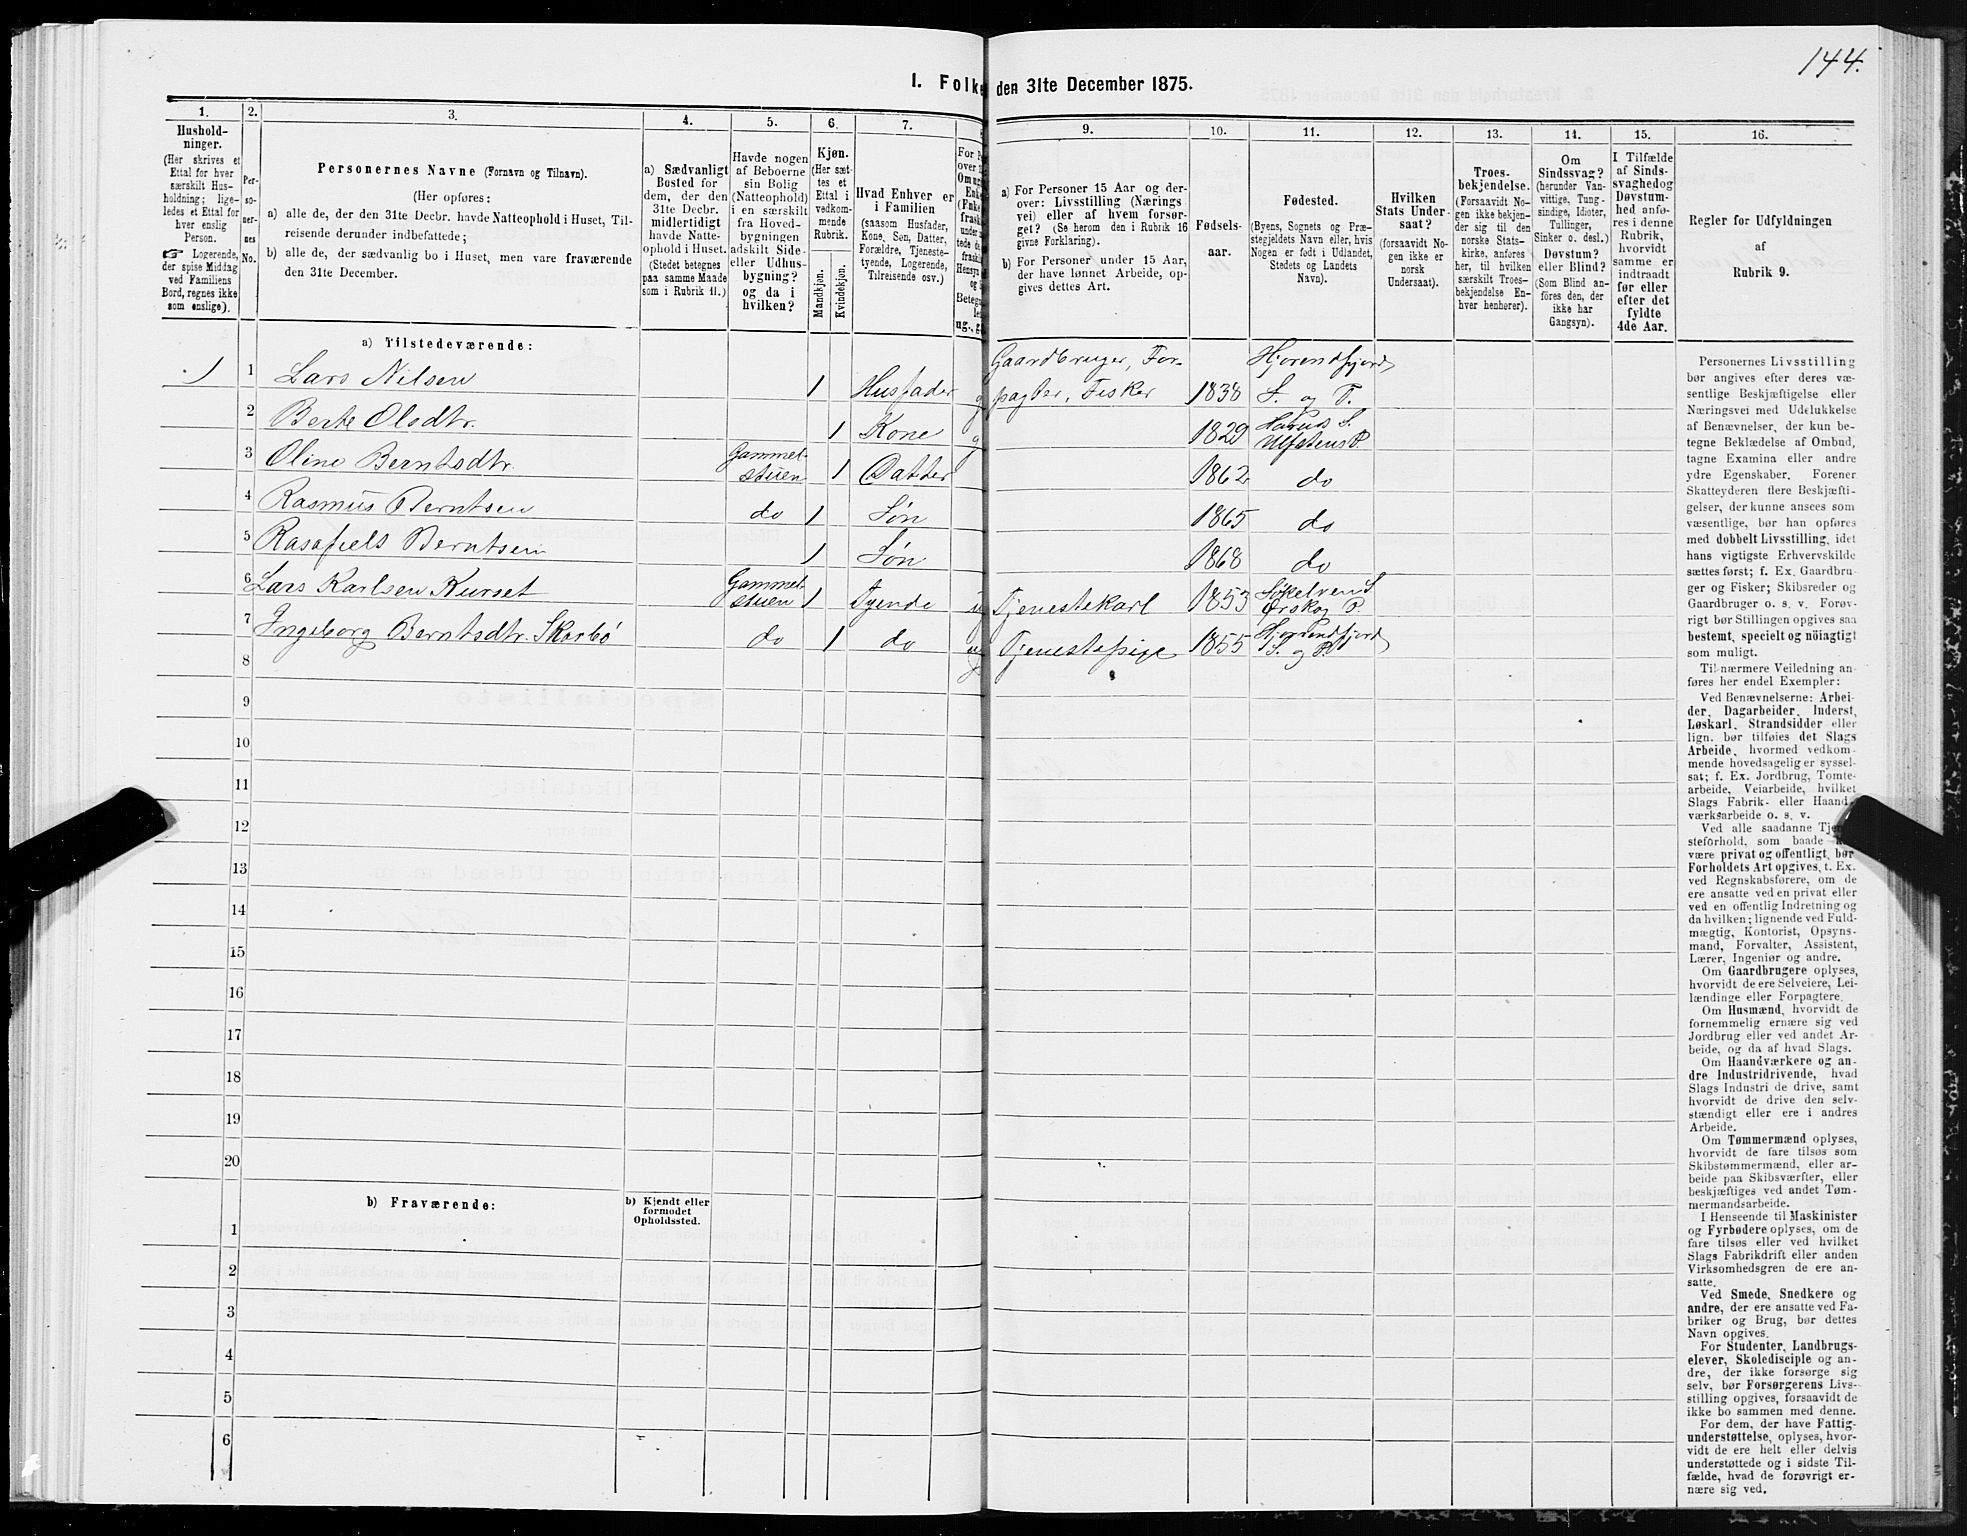 144.
I. Folke den 31te December 1875.
1. 2. 3. 4. 5. 6. 7. 9. 10. 11. 12. 13. 14. 15. 16.
Hushold-
ninger.
(Her skrives et
Ettal for hver
særskilt Hus-
holdning; lige-
ledes et Ettal for
hver enslig
Person.
☞ Logerende,
der spise Middag
ved Familiens
Bord, regnes ikke
som enslige).
Per-
so-
ner-
nes
No.
Personernes Navne (Fornavn og Tilnavn).
(Her opføres:
a) alle de, der den 31te Decbr. havde Natteophold i Huset, Til-
reisende derunder indbefattede;
b) alle de, der sædvanlig bo i Huset, men vare fraværende
den 31te December.
a) Sædvanligt
Bosted for
dem, der den
31te Decbr.
midlertidigt
havde Natte-
ophold i Huset.
(Stedet betegnes
paa samme Maade
som i Rubrik 11.)
Havde nogen
af Beboerne
sin Bolig
(Natteophold)
i en særskilt
fra Hoved-
bygningen
adskilt Side-
eller Udhus-
bygning?
og da i
hvilken?
Kjøn.
(Her sæt-
tes et
Ettal i
vedkom-
mende
Rubrik.
Mandkjøn.
Kvindekjøn.
Hvad Enhver er
i Familien
(saasom Husfader,
Kone, Søn, Datter,
Forældre, Tjeneste-
tyende, Logerende,
Tilreisende osv.)
a) For Personer 15 Aar og der-
over: Livsstilling (Nærings
vei) eller af hvem forsør-
get? (Se herom den i Rubrik 16
givne Forklaring).
b) For Personer under 15 Aar,
der have lønnet Arbeide, op-
gives dettes Art.
Fødsels-
aar.
Fødested.
(Byens, Sognets og Præ-
stegjeldets Navn eller, hvis
Nogen er født i Udlandet,
Stedets og Landets
Navn).
Hvilken
Stats Under-
saat?
(forsaavidt No-
gen ikke er
norsk
Undersaat).
Troes-
bekjendelse.
(Forsaavidt No-
gen ikke bekjen-
der sig til den
norske Stats-
kirke, anføres
her, til hvilken
særskilt Troes-
bekjendelse En-
hver henhører).
Om
Sindssvag?
(herunder Van-
vittige, Tung-
sindige, Idioter,
Tullinger,
Sinker o. desl.)
Døvstum?
eller Blind?
(Som Blind an-
føres den, der
ikke har
Gangsyn).
I Tilfælde
af Sinds-
svaghedog
Døvstum-
hed anfø-
res i denne
Rubrik,
hvorvidt
samme er
indtraadt
før eller
efter det
fyldte
4de Aar.
Regler for Udfyldningen
af
Rubrik 9.
a) Tilstedeværende:
1 1 Lars Nilsen 1 Husfader g Gaardbruger, For-
pagter, Fisker 1838 Hjorendfjord
S. og P.
2 Berte Olsdtr. 1 Kone g 1829 Harus S.
Ulfstens P
3 Oline Berntsdtr. Gammel-
stuen 1 Datter 1862 do
4 Rasmus Berntsen do 1 Søn 1865 do
5 Rasafiels Berntsen 1 Søn 1868 do
6 Lars Karlsen Kurset Gammel-
stuen 1 Tyende ug Tjenestekarl 1853 Søkelven S.
Ørskog P.
7 Ingeborg Berntsdtr. Skarbø do 1 do ug Tjenestepige 1855 Hjorendfjord
S. og P.
8
9
10
11
12
13
14
15
16
17
18
19
20
b) Fraværende:
b) Kjendt eller
formodet
Opholdssted.
1
2
3
4
5
6
Personernes Livsstilling
bør angives efter deres væ-
sentlige Beskjæftigelse eller
Næringsvei med Udelukkelse
af Benævnelser, der kun be-
tegne Beklædelse af Ombud,
tagne Examina eller andre
ydre Egenskaber. Forener
Skatteyderen flere Beskjæfti-
gelser, der kunne ansees som
væsentlige, bør han opføres
med dobbelt Livsstilling, idet
hans vigtigste Erhvervskilde
sættes først; f. Ex. Gaardbru-
ger og Fisker; Skibsreder og
Gaardbruger o. s. v. Forøv-
rigt bør Stillingen opgives saa
bestemt, specielt og nöiagtigt
som muligt.
Til nærmere Veiledning an-
føres her endel Exempler:
Ved Benævnelserne: Arbei-
der, Dagarbeider, Inderst,
Løskarl, Strandsidder eller
lign. bør tilføies det Slags
Arbeide, hvormed vedkom-
mende hovedsagelig er syssel-
sat; f. Ex. Jordbrug, Tomte-
arbeide, Veiarbeide, hvilket
Slags Fabrik- eller Haand-
værksarbeide o. s. v.
Ved alle saadanne Tjene-
steforhold, som baade kan
være privat og offentligt, bør
Forholdets Art opgives, t. Ex.
ved Regnskabsførere, om de
ere ansatte ved en privat eller
ved en offentlig Indretning og
da hvilken; lignende ved Fuld-
mægtig, Kontorist, Opsyns-
mand, Forvalter, Assistent,
Lærer, Ingeniør og andre.
Om Gaardbrugere oplyses,
hvorvidt de ere Selveiere, Lei-
lændinge eller Forpagtere.
Om Husmænd, hvorvidt de
fornemmelig ernære sig ved
Jordbrug eller ved andet Ar-
beide, og da af hvad Slags.
Om Haandværkere og an-
dre Industridrivende, hvad
Slags Industri de drive, samt
hvorvidt de drive den selv-
stændigt eller ere i andres
Arbeide.
Om Tømmermænd oplyses,
hvorvidt de fare tilsøs som
Skibstømmermænd, eller ar-
beide paa Skibsværfter, eller
beskjæftiges ved andet Tøm-
mermandsarbeide.
I Henseende til Maskinister
og Fyrbødere oplyses, om de
fare tilsøs eller ved hvilket
Slags Fabrikdrift eller anden
Virksomhedsgren de ere an-
satte.
Ved Smede, Snedkere og
andre, der ere ansatte ved Fa-
briker og Brug, bør dettes
Navn opgives.
For Studenter, Landbrugs-
elever, Skoledisciple og an-
dre, der ikke forsørge sig
selv, bør Forsørgerens Livs-
stilling opgives, forsaavidt de
ikke bo sammen med denne.
For dem, der have Fattig-
understøttelse, oplyses, hvor-
vidt de ere helt eller delvis
understøttede og i sidste Til-
fælde, hvad de forøvrigt er-
nære sig ved.